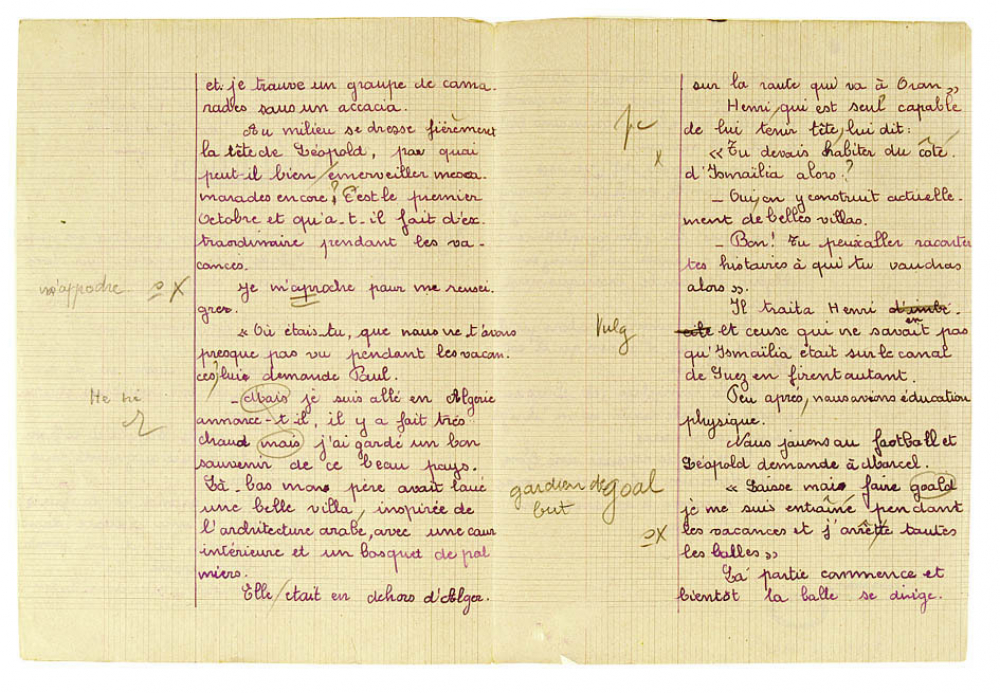 et je trouve un groupe de cama-
rades sous un accacia.
Au milieu se dresse fièrement
la tête de Léopold, par quoi
peut-il bien émerveiller mesca-
marades encore? C'est le premier
Octobre et qu'a-t-il fait d'ex-
traordinaire pendant les va-
cances.
m'approche x
Je m'aproche pour me rensei-
gner.
« Où étais-tu, que nous ne t'avons
presque pas vu pendant les vacan-
ces, lui demande Paul.
- Mais je suis allé en Algérie
annonce-t-il, il y a fait très
chaud mais j'ai gardé un bon
souvenir de ce beau pays.
Là-bas mon père avait loué
une belle villa, inspirée de
l'architecture arabe, avec une cour
intérieure et un bosquet de pal
miers.
Elle était en dehors d'Alger.
sur la route qui va à Oran »
Henri, qui est seul capable
de lui tenir tête, lui dit:
« Tu devais habiter du côté
d'Ismaïlia alors?
- Oui, on y construit actuelle-
ment de belles villas.
- Bon! Tu peux aller raconter
tes histoires à qui tu voudras
alors ».
Il traita Henri d'imbé-
cile en et ceuse qui ne savait pas
Vulg
qu'Ismaïlia était sur le canal
de Suez en firent autant.
Peu après, nous avions éducation
physique.
Nous jouons au football et
Léopold demande à Marcel.
« Laisse moi faire goald
gardien de but goal
je me suis entraîné pendant
les vacances et j'arrête toutes
x
les balles »
La partie commence et
bientôt la balle se dirige.